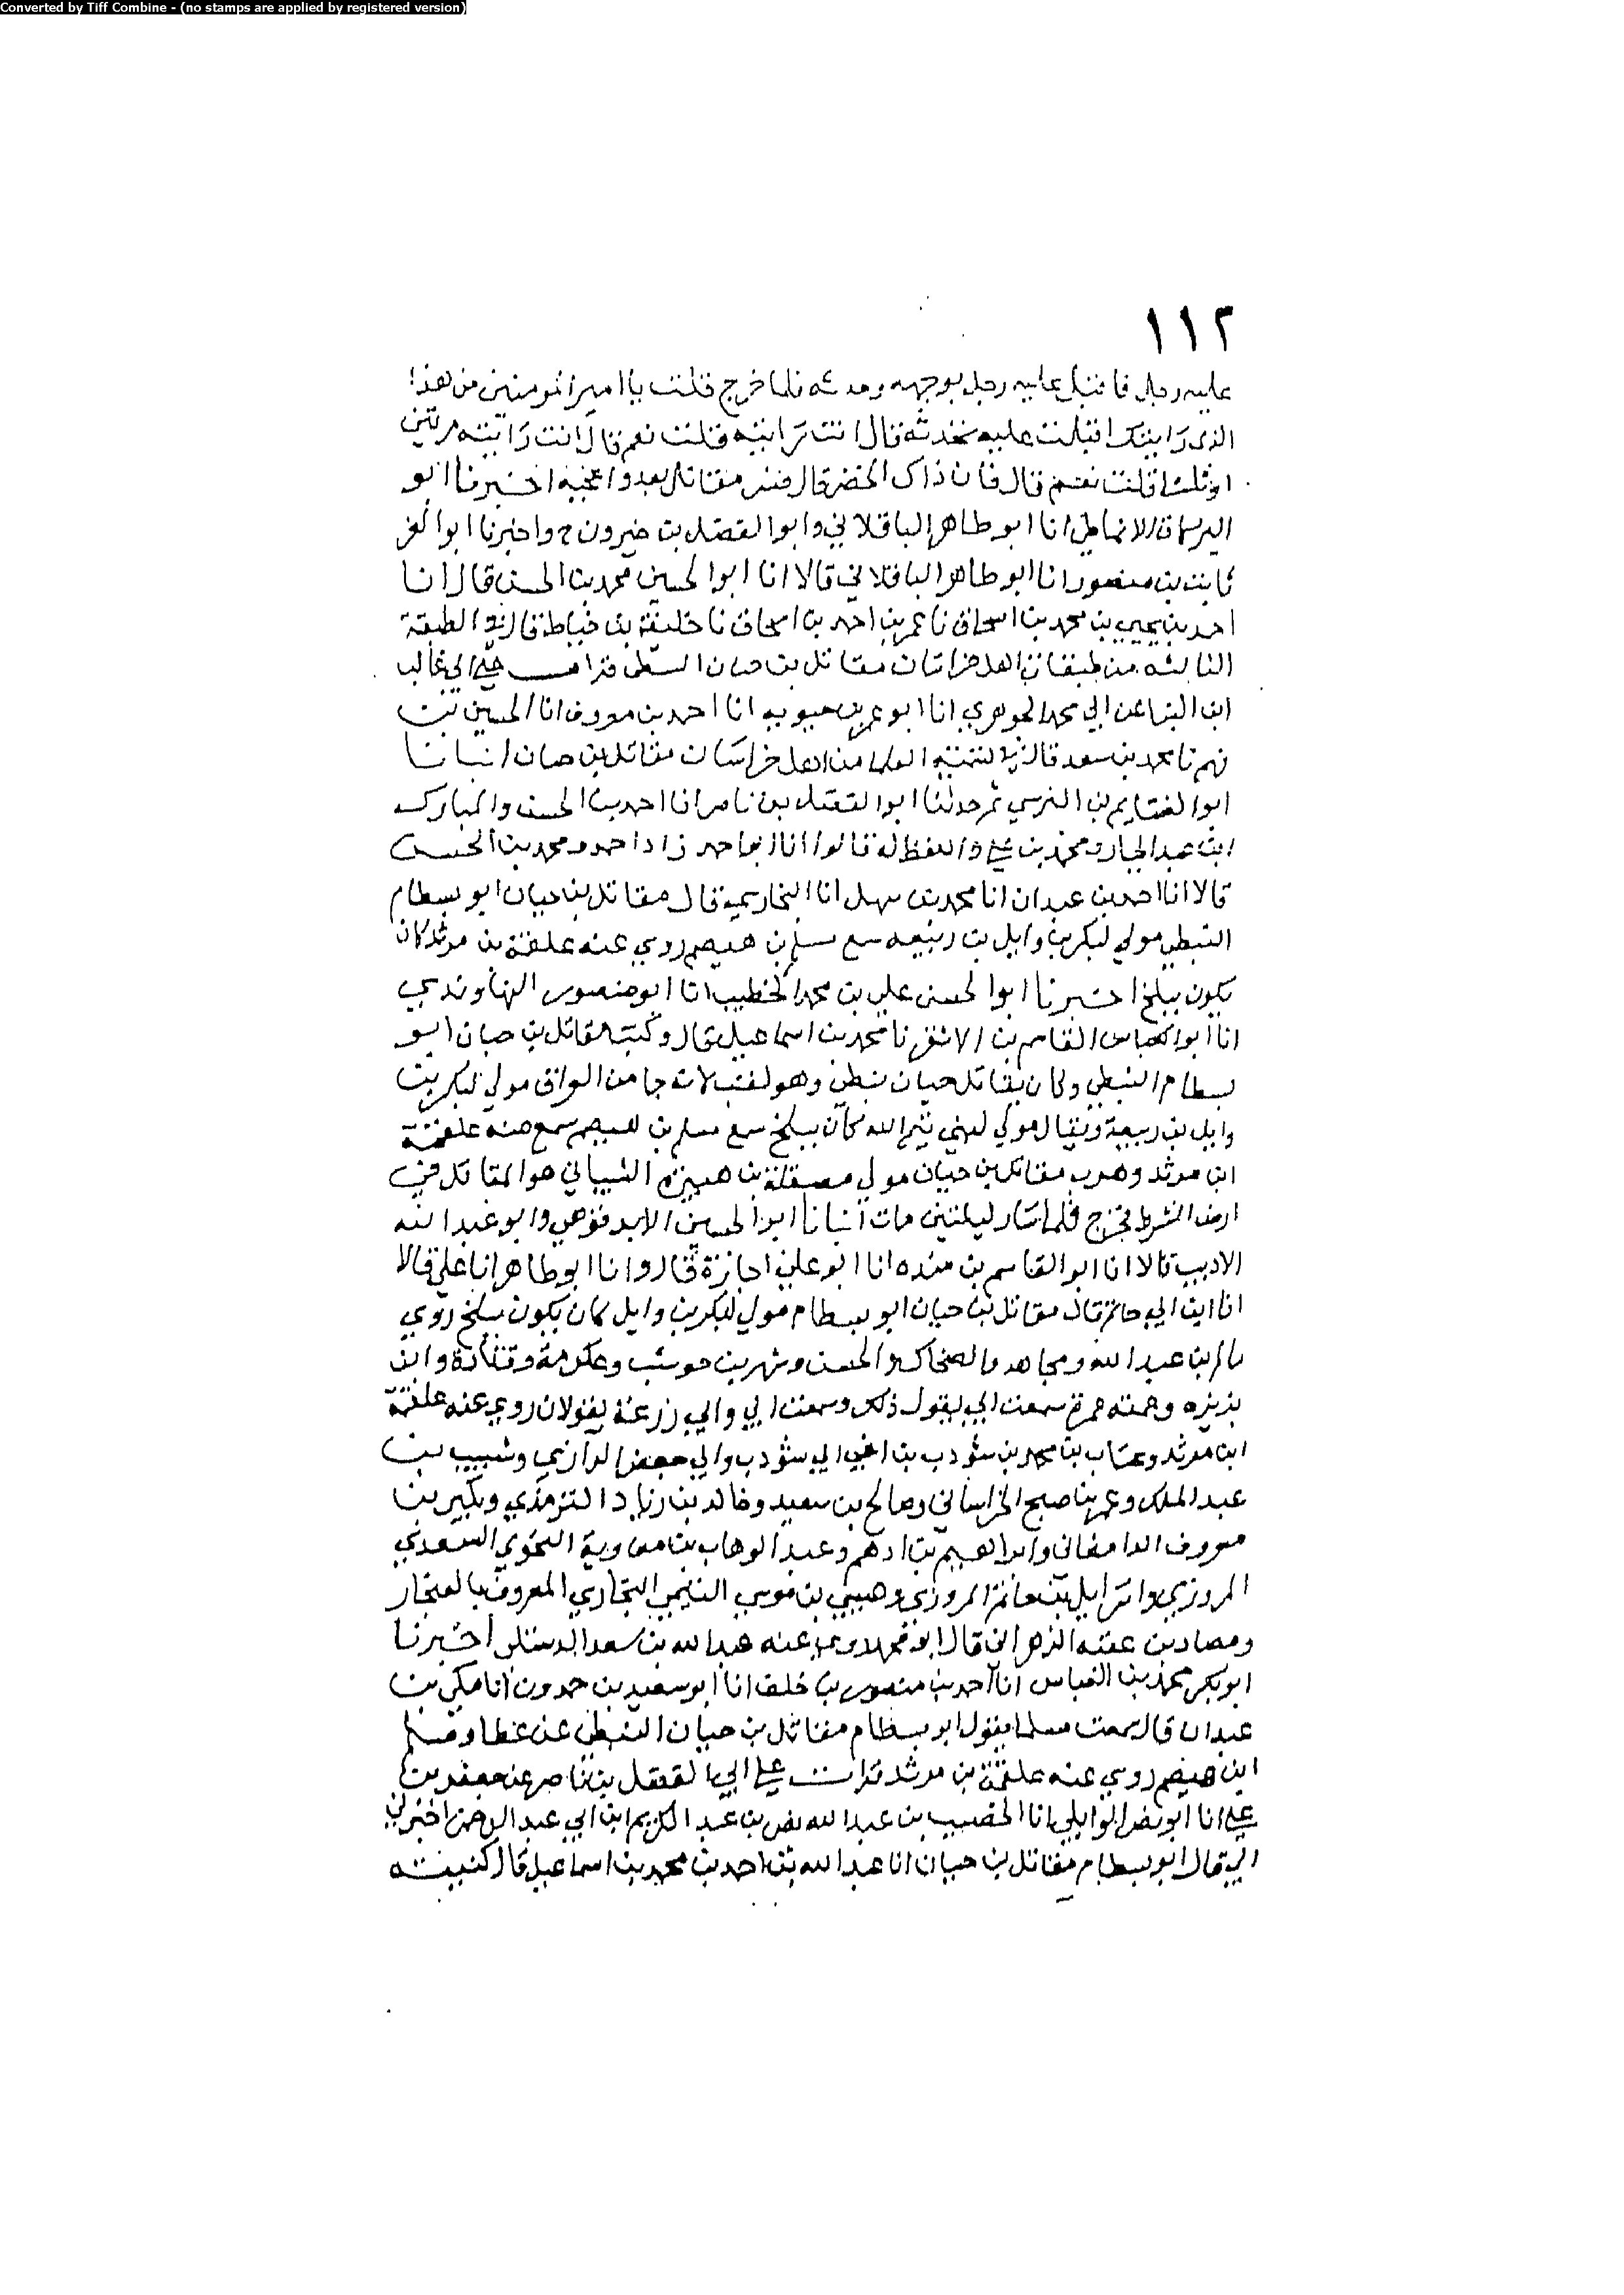 Converted by Tiff Combine - (no stamps are applied by registered version)
١١٢
عليه رجل فاقبل عليه رجل بوجهه وحدثه فلما خرج قلت يا امير المومنين من هذا
الذي رايتك اقبلت عليه تحدثه قال انت رايته قلت نعم قال انت رايته مرتين
او ثلثا قلت نعم قال فان ذاك الخضر قال مقاتل بعد واعجبه اخبرنا ابو
البركات الانماطي انا ابو طاهر الباقلاني وابو الفضل بن خيرون ح واخبرنا ابو العز
ثابت بن منصور انا ابو طاهر الباقلاني قالا انا ابو الحسين محمد بن الحسن قال انا
احمد بن يحيي بن محمد بن اسحاق نا عمر بن احمد بن اسحاق نا خليفة بن خياط قال في الطبقة
الثالثه من طبقات اهل خراسان مقاتل بن حيان النبطي قرات علي ابي غالب
ابن البنا عن ابي محمد الجوهري انا ابو عمر بن حيويه انا احمد بن معروف انا الحسين بن
فهم نا محمد بن سعد قال في تسمية العلما من اهل خراسان مقاتل بن حيان انبانا
ابو الغنايم بن النرسي ثم حدثنا ابو الفضل بن ناصر انا احمد بن الحسن والمبارك
ابن عبد الجبار ومحمد بن علي واللفظ له قالوا انا ابو احمد زاد احمد ومحمد بن الحسن
قالا انا احمد بن عبدان انا محمد بن سهل انا البخاري قال مقاتل بن حيان ابو بسطام
النبطي مولي لبكر بن وايل بن ربيعه سمع مسلم بن هيصم روي عنه علقمة بن مرثد كان
يكون ببلخ اخبرنا ابو الحسن علي بن محمد الخطيب انا ابو منصور النهاوندي
انا ابو العباس القاسم بن الاشقر نا محمد بن اسماعيل قال وكنية مقاتل بن حيان ابو
بسطام النبطي وكان يقال حيان نبطي وهو لقب لانه جا من العراق مولي لبكر بن
وايل بن ربيعة ويقال مولي لبني تيم الله كان ببلخ سمع مسلم بن هيصم سمع منه علقمة
ابن مرثد وهرب مقاتل بن حيان مولي مصقلة بن هبيرة الشيباني هو المقاتل في
ارض الشرط فخرج فلما سار ليلتين مات انبانا ابو الحسين الابرقوهي وابو عبد الله
الاديب قالا انا ابو القاسم بن منده انا ابو علي اجازة قال وانا ابو طاهر انا علي قالا
انا ابن ابي حاتم قال مقاتل بن حيان ابو بسطام مولي لبكر بن وايل كان يكون ببلخ روي
سالم بن عبد الله ومجاهد والضحاك والحسن وشهر بن حوشب وعكرمة وقتادة وابن
بريره وعمته عمرة سمعت ابي يقول ذلك وسمعت ابي وابي زرعة يقولان روي عنه علقمة
ابن مرثد وعتاب بن محمد بن شوذب بن اخي ابي شوذب وابي جعفر الرازي وشبيب بن
عبد الملك وعمر بن صبح الخراساني وصالح بن سعيد وخالد بن زياد الترمذي وبكير بن
معروف الدامغاني وابراهيم بن ادهم وعبد الوهاب بن معاوية النحوي السعدي
المروزي واسرايل بن حاتم المروزي وعيسي بن موسي التيمي البخاري المعروف بالغنجار
ومصاد بن عقبه الزهراني قال ابو محمد روي عنه عبد الله بن سعد الدشتكي اخبرنا
ابو بكر محمد بن العباس انا احمد بن منصور بن خلف انا ابو سعيد بن حمدون انا مكي بن
عبدان قال سمعت مسلما يقول ابو بسطام مقاتل بن حيان النبطي عن عطا ومسلم
ابن هيصم روي عنه علقمة بن مرثد قرات علي ابي الفضل بن ناصر عن جعفر بن
علي انا ابو نصر الوايلي انا الخصيب بن عبد الله نصر بن عبد الكريم ابن ابي عبد الرحمن اخبرني
ابي قال ابو بسطام مقاتل بن حيان انا عبد الله بن احمد بن محمد بن اسماعيل قال كنيته